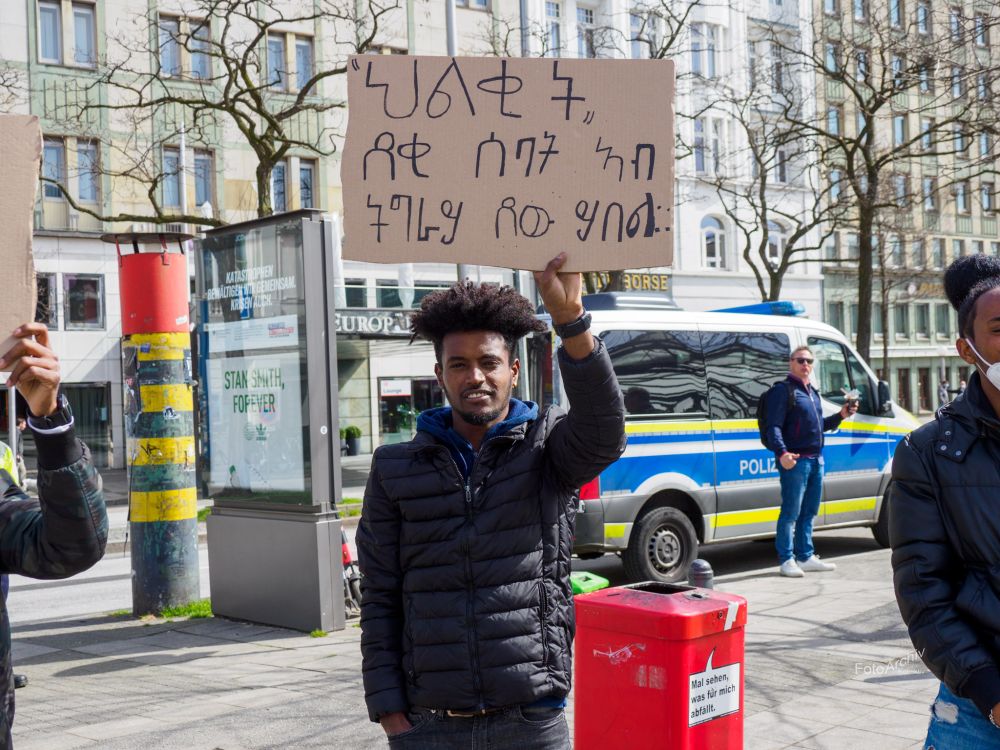 "ህልቂት„
ደቂ ሰባት ኣብ
ትግራይ ይበል።
KATASTROPHEN
BEWÄLTIGEN WIR GEMEINSAM.
KRISEN AUCH.
STAN SMITH,
FOREVER
EUROP
BÖRSE
POLIZ
Mal sehen,
was für mich
abfällt.
FotoArchiv